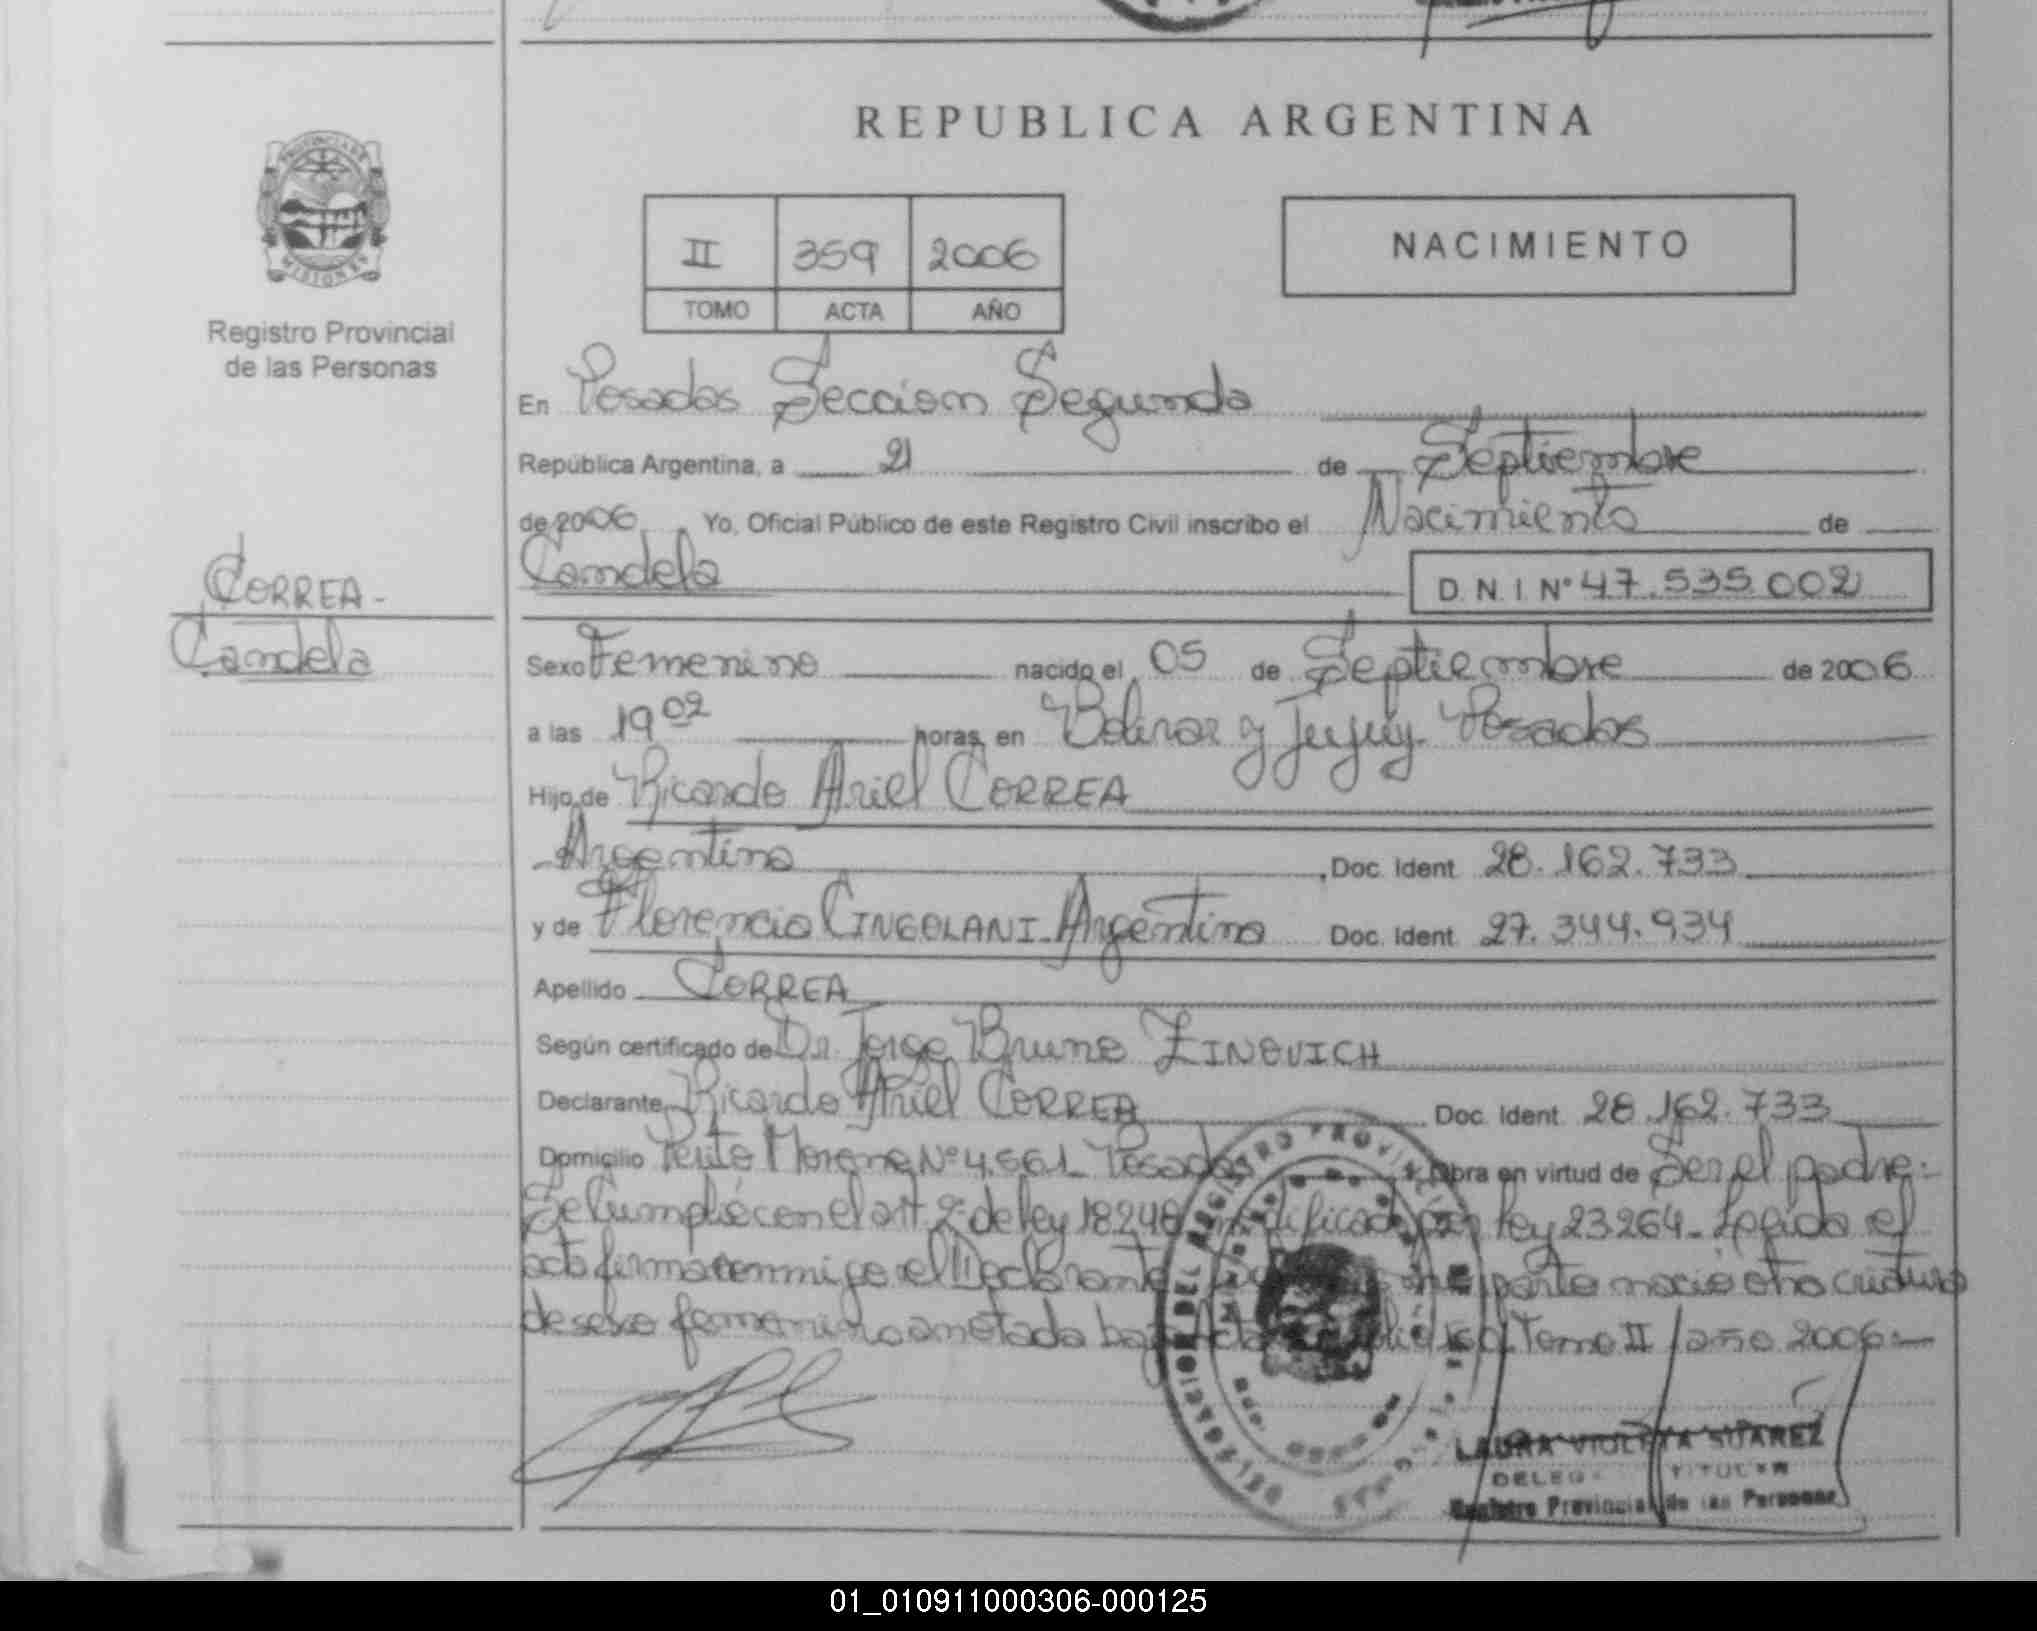 REPUBLICA ARGENTINA
PROVINCIA DE
MISIONES
Registro Provincial
de las Personas
II 359 2006
TOMO ACTA AÑO
NACIMIENTO
En Posadas Seccion Segunda
República Argentina, a 21 de Septiembre
de 2006. Yo, Oficial Público de este Registro Civil inscribo el Nacimiento de
Candela D. N. I. N° 47.535.002
CORREA-
Candela
Sexo Femenino nacido el 05 de Septiembre de 2006
a las 19 02 horas, en Bolivar y Jujuy. Posadas
Hijo de Ricardo Ariel CORREA
Argentino, Doc. Ident. 28.162.733
y de Florencia CINGOLANI-Argentina Doc. Ident. 27.344.934
Apellido CORREA
Según certificado de Dr. Jorge Bruno ZINOVICH
Declarante Ricardo Ariel CORREA Doc. Ident. 28.162.733
Domicilio Perito Moreno Nº 4.561_ Posadas Obra en virtud de Ser el padre:
Se Cumplió con el art 2º de ley 18248 modificado por ley 23264_ Leída el
acta firma conmigo el Declarante parto nacio otra criatura
de sexo femenino anotada bajo Tomo II año 2006:
LAURA VIOLETA SUAREZ
TITULAR
Registro Provincial de las Personas
01_010911000306-000125